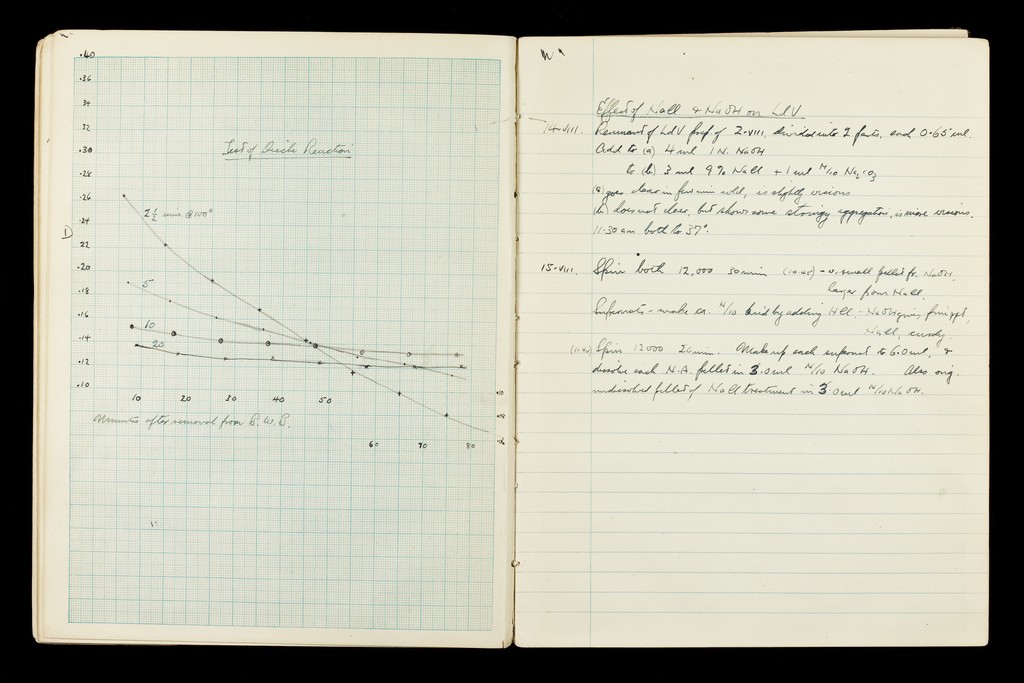 .40
.36
34
32
.30
.28
.26
.24
D
22
.20
.18
.16
.14
.12
.10
Test of Dische Reaction
2½ mins @ 100°
5
10
20
10 20 30 40 50
60 70 80
Minutes after removal from B.W.B.
Effect of NaCl & NaOH on LdV
14.VIII. Remnant of LdV prep of 2.VIII, divided into 2 parts, each 0.65 ml.
Add to (a) 4 ml 1 N. NaOH
to (b) 3 ml 9% NaCl + 1 ml M/10 Na₂CO₃
(a) goes clear in few min cold, is slightly viscous
(b) does not clear, but shows some stringy aggregation, is more viscous.
11.30 am both to 37°.
15.VIII. Spin both 12,000 30 min - v. small pellet fr. NaOH.
larger from NaCl.
Supernats - make ca. N/10 acid by adding HCl. - NaOH gives fine ppt,
NaCl, curdy.
(11.40) Spin 12000 20 min. Make up each supernat to 6.0 ml, &
dissolve each N.A. pellet in 3.0 ml N/10 NaOH. Also orig.
undissolved pellet of NaCl treatment in 3.0 ml N/10 NaOH.